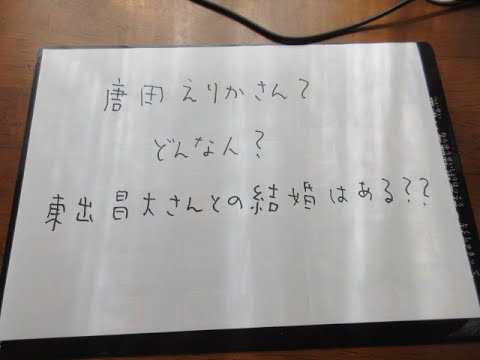 唐田えりかさんて
どんな人?
東出昌大さんとの結婚はある??